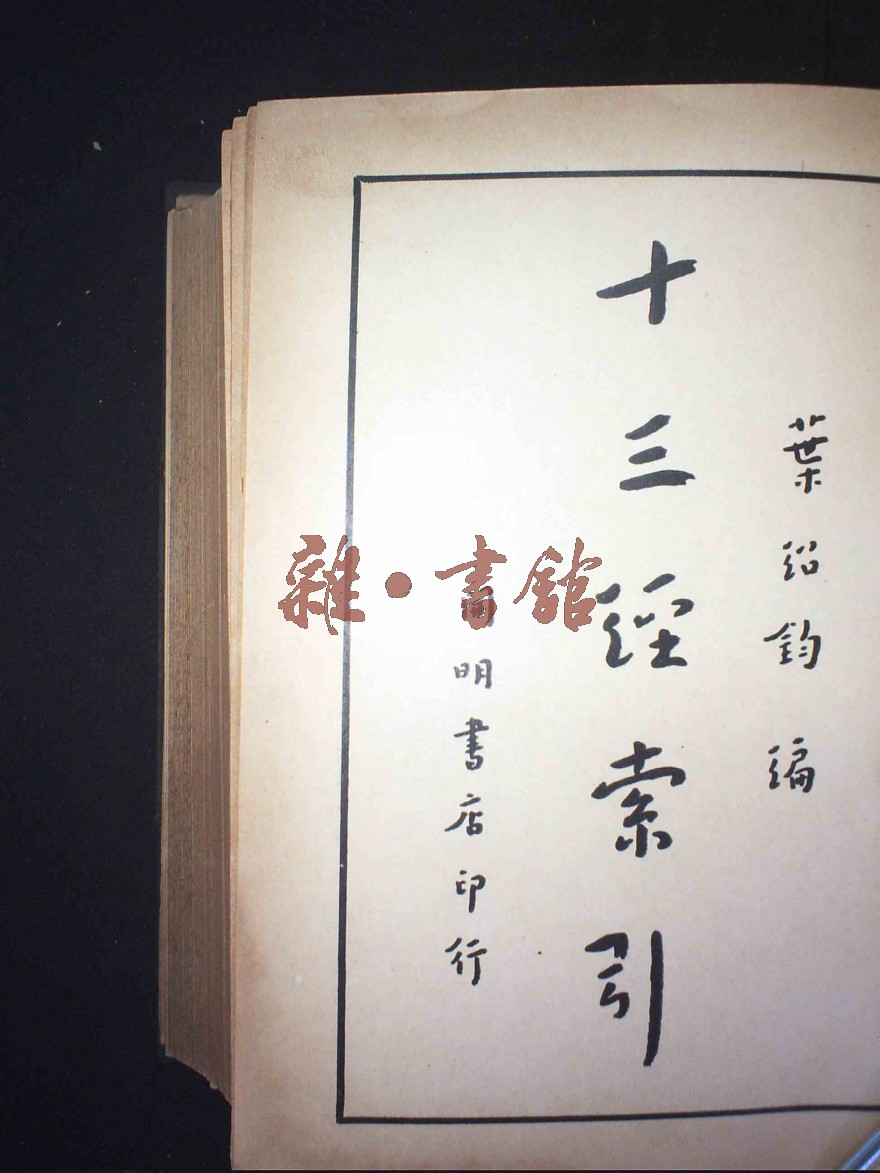 葉紹鈞編
十三經索引
開明書店印行
雜·書館